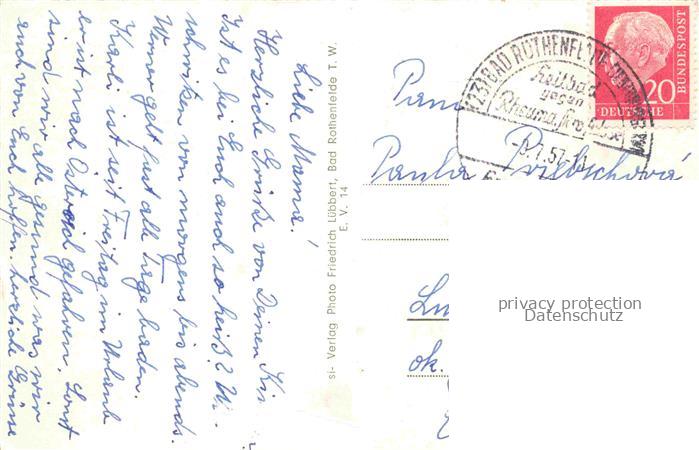 Liebe Mama!
Herzliche Grüße von Deinen Kin
Ist es bei Euch auch so heiß? Wi
schwitzen von morgens bis abends.
Werner geht fast alle Tage baden.
Karli ist seit Freitag im Urlaub
er ist nach Österreich gefahren. Sonst
sind wir alle gesund was wir
auch von Euch hoffen. herzliche Grüsse
si- Verlag Photo Friedrich Lübbert, Bad Rothenfelde T. W.
E. V. 14
(23) BAD ROTHENFELDE
Heilbad
gegen
Rheuma,
-8.7.57.
20
DEUTSCHE
BUNDESPOST
Pan
Paula
Lu
ok.
privacy protection
Datenschutz